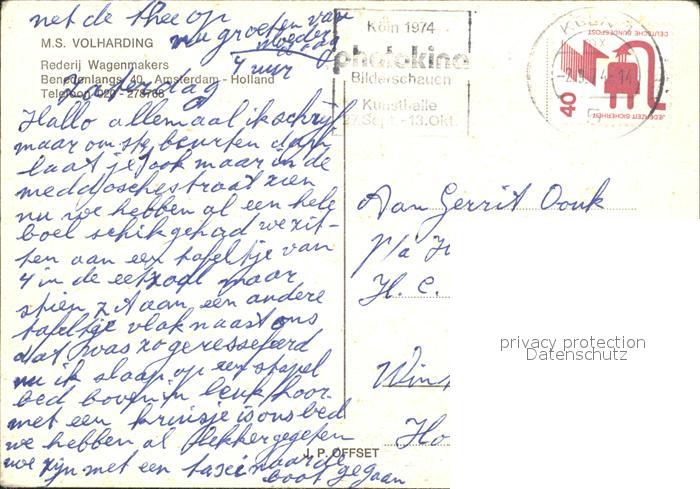 net de thee op
nu groeten van
moeder
4 uur
M.S. VOLHARDING
Rederij Wagenmakers
Benedenlangs 40 - Amsterdam - Holland
Telefoon 020 - 278768
zaterdag
Hallo allemaal ik schrijf
maar om ste beurten dan
laat je ook maar in de
meddoschestraat zien
nu we hebben al een hele
boel schik gehad we zit-
ten aan een tafeltje van
4 in de eetzaal maar
stien zit aan een andere
tafeltje vlak naast ons
dat was zo geresseferd
nu ik slaap op een stapel
bed boven in leuk hoor
met een kruisje is ons bed
we hebben al lekker gegeten
we zijn met een taxi naar de
boot gegaan
J. P. OFFSET
Köln 1974
photokina
Bilderschauen
Kunsthalle
27. Sept. - 13. Okt.
KÖLN
DEUTSCHE BUNDESPOST
JEDERZEIT SICHERHEIT
40
Aan Gerrit Oonk
p/a H
H. C.
Win
Ho
privacy protection
Datenschutz